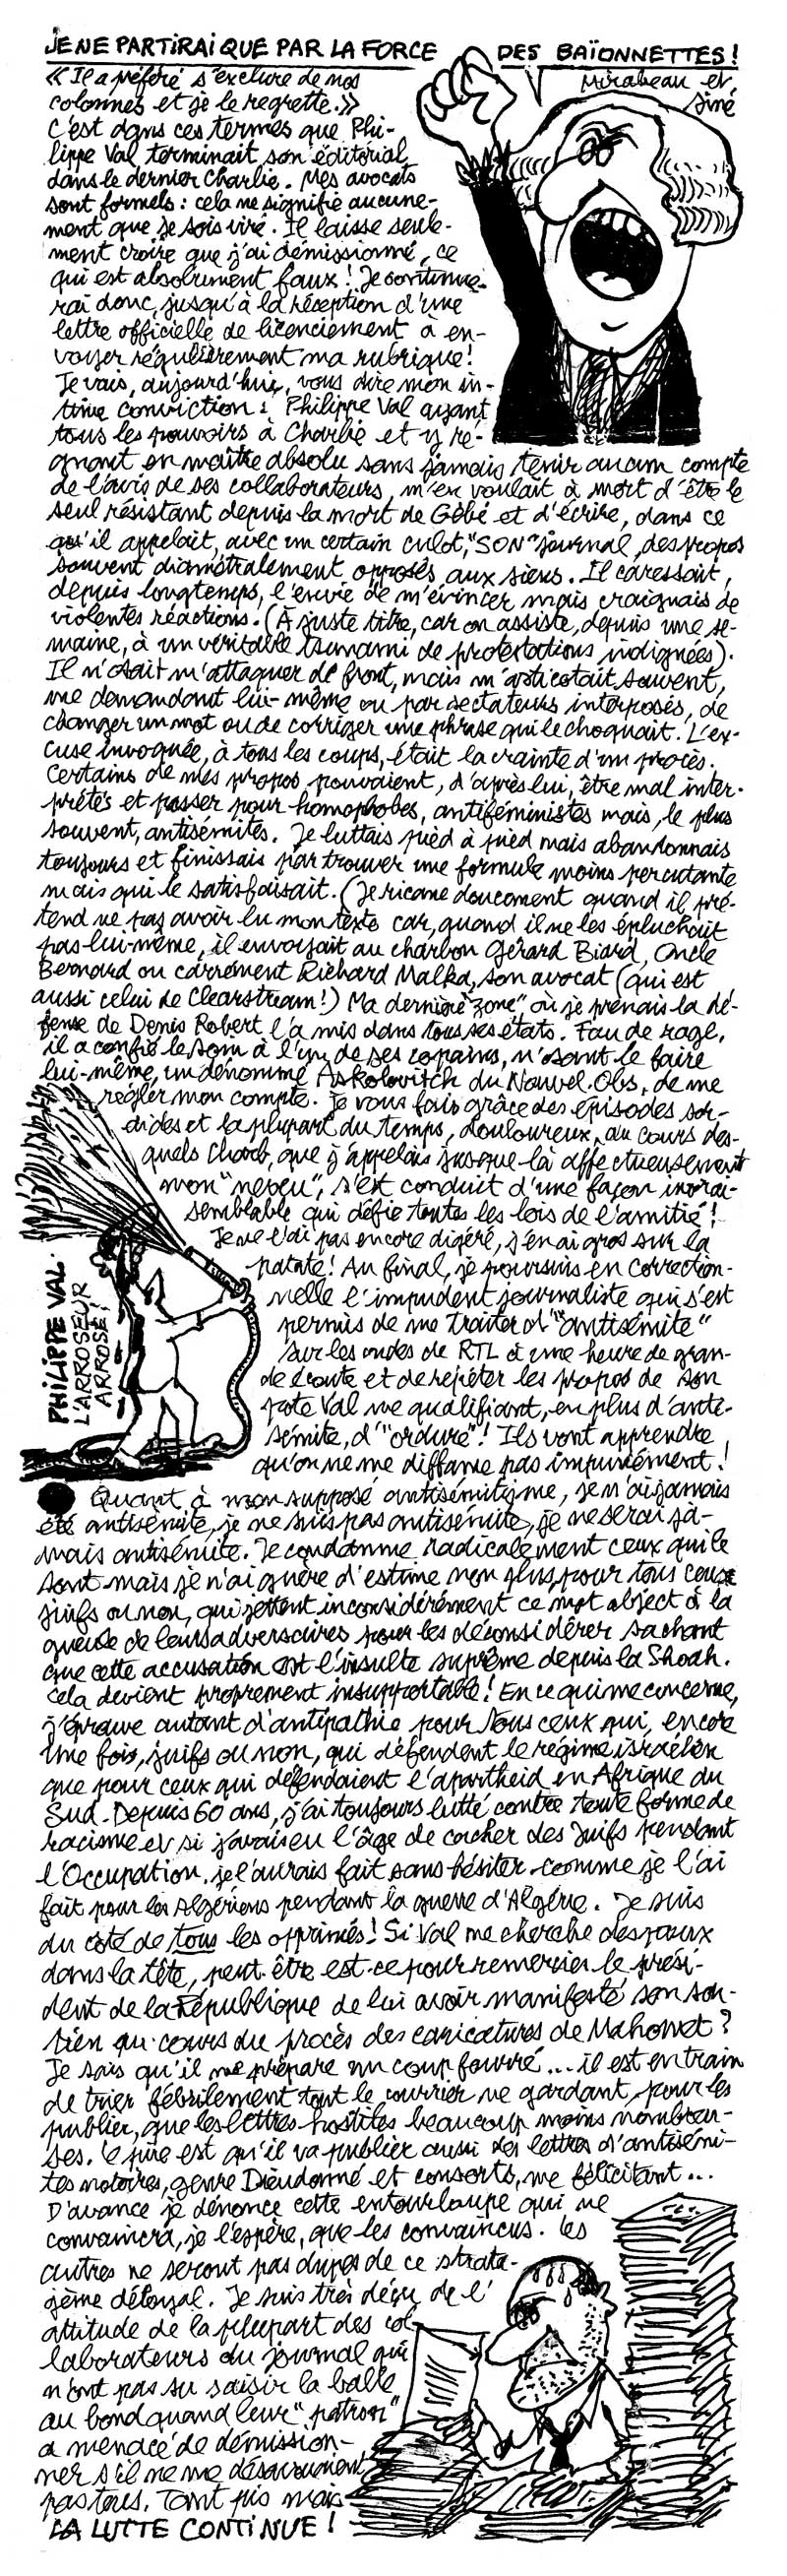 JE NE PARTIRAI QUE PAR LA FORCE DES BAÏONNETTES !
Mirabeau et
Siné
« Il a préféré s'exclure de nos
colonnes et je le regrette. »
C'est dans ces termes que Phi-
lippe Val terminait son éditorial
dans le dernier Charlie. Mes avocats
sont formels : cela ne signifie aucune-
ment que je sois viré. Il laisse seule-
ment croire que j'ai démissionné, ce
qui est absolument faux ! Je continue-
rai donc, jusqu'à la réception d'une
lettre officielle de licenciement à en-
voyer régulièrement ma rubrique !
Je vais, aujourd'hui, vous dire mon in-
time conviction : Philippe Val ayant
tous les pouvoirs à Charlie et y ré-
gnant en maître absolu sans jamais tenir aucun compte
de l'avis de ses collaborateurs, m'en voulait à mort d'être le
seul résistant depuis la mort de Gébé et d'écrire, dans ce
qu'il appelait, avec un certain culot, "SON" journal, des propos
souvent diamétralement opposés aux siens. Il caressait,
depuis longtemps, l'envie de m'évincer mais craignais de
violentes réactions. (À juste titre, car on assiste, depuis une se-
maine, à un véritable tsunami de protestations indignées).
Il n'osait m'attaquer de front, mais m'asticotait souvent,
me demandant lui-même ou par sectateurs interposés, de
changer un mot ou de corriger une phrase qui le choquait. L'ex-
cuse invoquée, à tous les coups, était la crainte d'un procès.
Certains de mes propos pouvaient, d'après lui, être mal inter-
prétés et passer pour homophobes, antiféministes mais, le plus
souvent, antisémites. Je luttais pied à pied mais abandonnais
toujours et finissais par trouver une formule moins percutante
mais qui le satisfaisait. (Je ricane doucement quand il pré-
tend ne pas avoir lu mon texte car, quand il ne les épluchait
pas lui-même, il envoyait au charbon Gérard Biard, Oncle
Bernard ou carrément Richard Malka, son avocat (qui est
aussi celui de Clearstream !) Ma dernière "zone" où je prenais la dé-
fense de Denis Robert l'a mis dans tous ses états. Fou de rage,
il a confié le soin à l'un de ses copains, n'osant le faire
lui-même, un dénommé Askolovitch du Nouvel. Obs, de me
régler mon compte. Je vous fais grâce des épisodes sor-
dides et la plupart du temps, douloureux, au cours des-
quels Charb, que j'appelais jusque-là affectueusement
mon "neveu", s'est conduit d'une façon invrai-
semblable qui défie toutes les lois de l'amitié !
Je ne l'ai pas encore digéré, j'en ai gros sur la
patate ! Au final, je poursuis en correction-
nelle l'impudent journaliste qui s'est
permis de me traiter d'"antisémite"
sur les ondes de RTL à une heure de gran-
de écoute et de répéter les propos de son
pote Val me qualifiant, en plus d'anti-
sémite, d'"ordure" ! Ils vont apprendre
qu'on ne me diffame pas impunément !
PHILIPPE VAL.
L'ARROSEUR
ARROSÉ !
Quant à mon supposé antisémitisme, je n'ai jamais
été antisémite, je ne suis pas antisémite, je ne serai ja-
mais antisémite. Je condamne radicalement ceux qui le
sont mais je n'ai guère d'estime non plus, pour tous ceux
juifs ou non, qui jettent inconsidérément ce mot abject à la
gueule de leurs adversaires pour les déconsidérer sachant
que cette accusation est l'insulte suprême depuis la Shoah.
Cela devient proprement insupportable ! En ce qui me concerne,
j'éprouve autant d'antipathie pour tous ceux qui, encore
une fois, juifs ou non, qui défendent le régime israélien
que pour ceux qui défendaient l'apartheid en Afrique du
Sud. Depuis 60 ans, j'ai toujours lutté contre toute forme de
racisme et si j'avais eu l'âge de cacher des Juifs pendant
l'Occupation, je l'aurais fait sans hésiter comme je l'ai
fait pour les Algériens pendant la guerre d'Algérie. Je suis
du côté de tous les opprimés ! Si Val me cherche des poux
dans la tête, peut-être est-ce pour remercier le prési-
dent de la République de lui avoir manifesté son sou-
tien au cours du procès des caricatures de Mahomet ?
Je sais qu'il me prépare un coup fourré... il est en train
de trier fébrilement tout le courrier ne gardant, pour les
publier, que les lettres hostiles beaucoup moins nombreu-
ses. Le pire est qu'il va publier aussi des lettres d'antisémi-
tes notoires, genre Dieudonné et consorts, me félicitant...
D'avance je dénonce cette entourloupe qui ne
convaincra, je l'espère, que les convaincus. Les
autres ne seront pas dupes de ce strata-
gème déloyal. Je suis très déçu de l'
attitude de la plupart des col
laborateurs du journal qui
n'ont pas su saisir la balle
au bond quand leur "patron"
a menacé de démission-
ner s'il ne me désavouaient
pas tous. Tant pis mais
LA LUTTE CONTINUE !